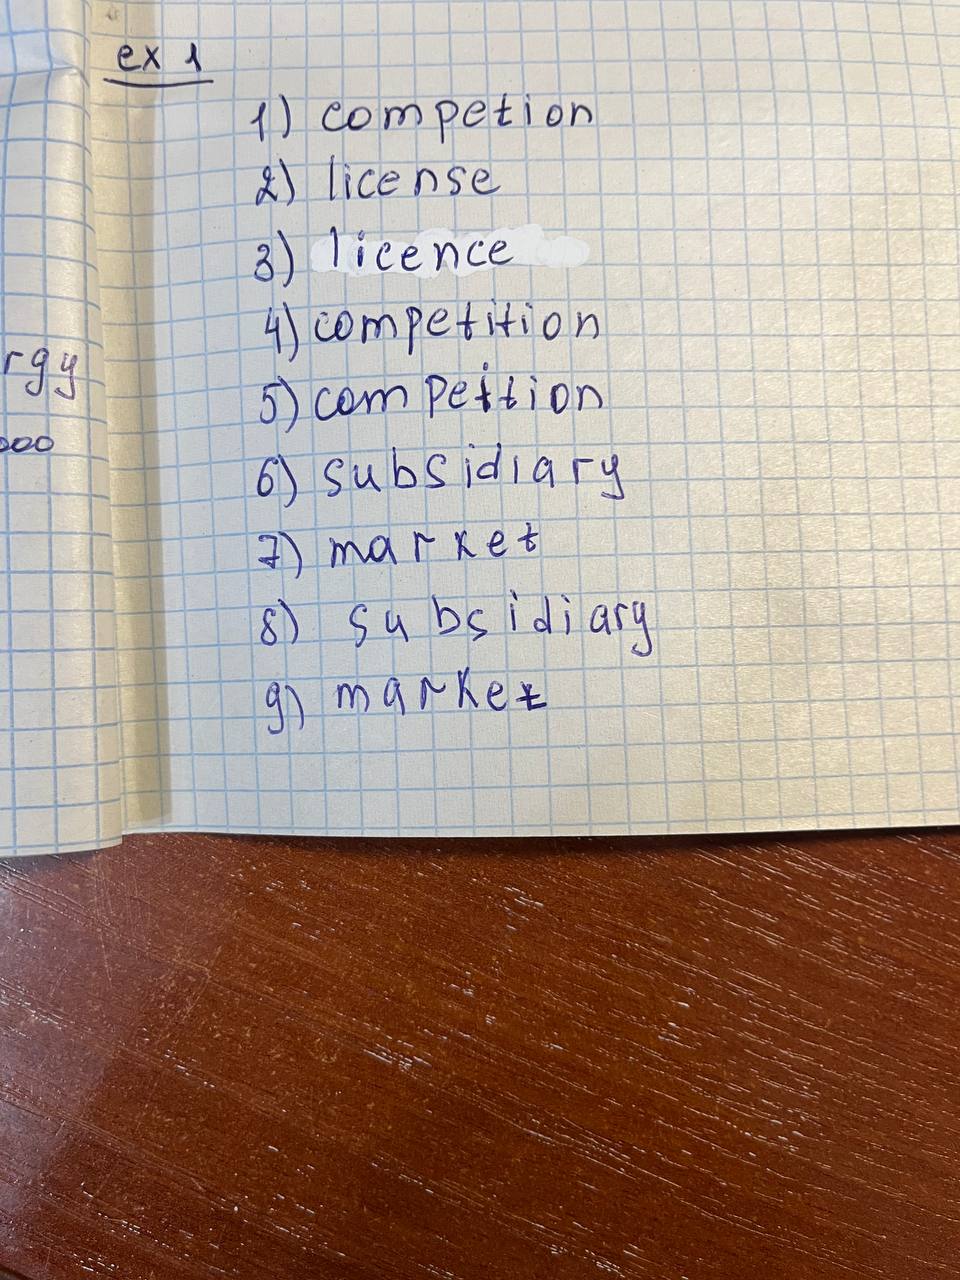 ex 1
1) competion
2) license
3) licence
4) competition
5) competition
6) subsidiary
7) market
8) subsidiary
9) market
rgy
000